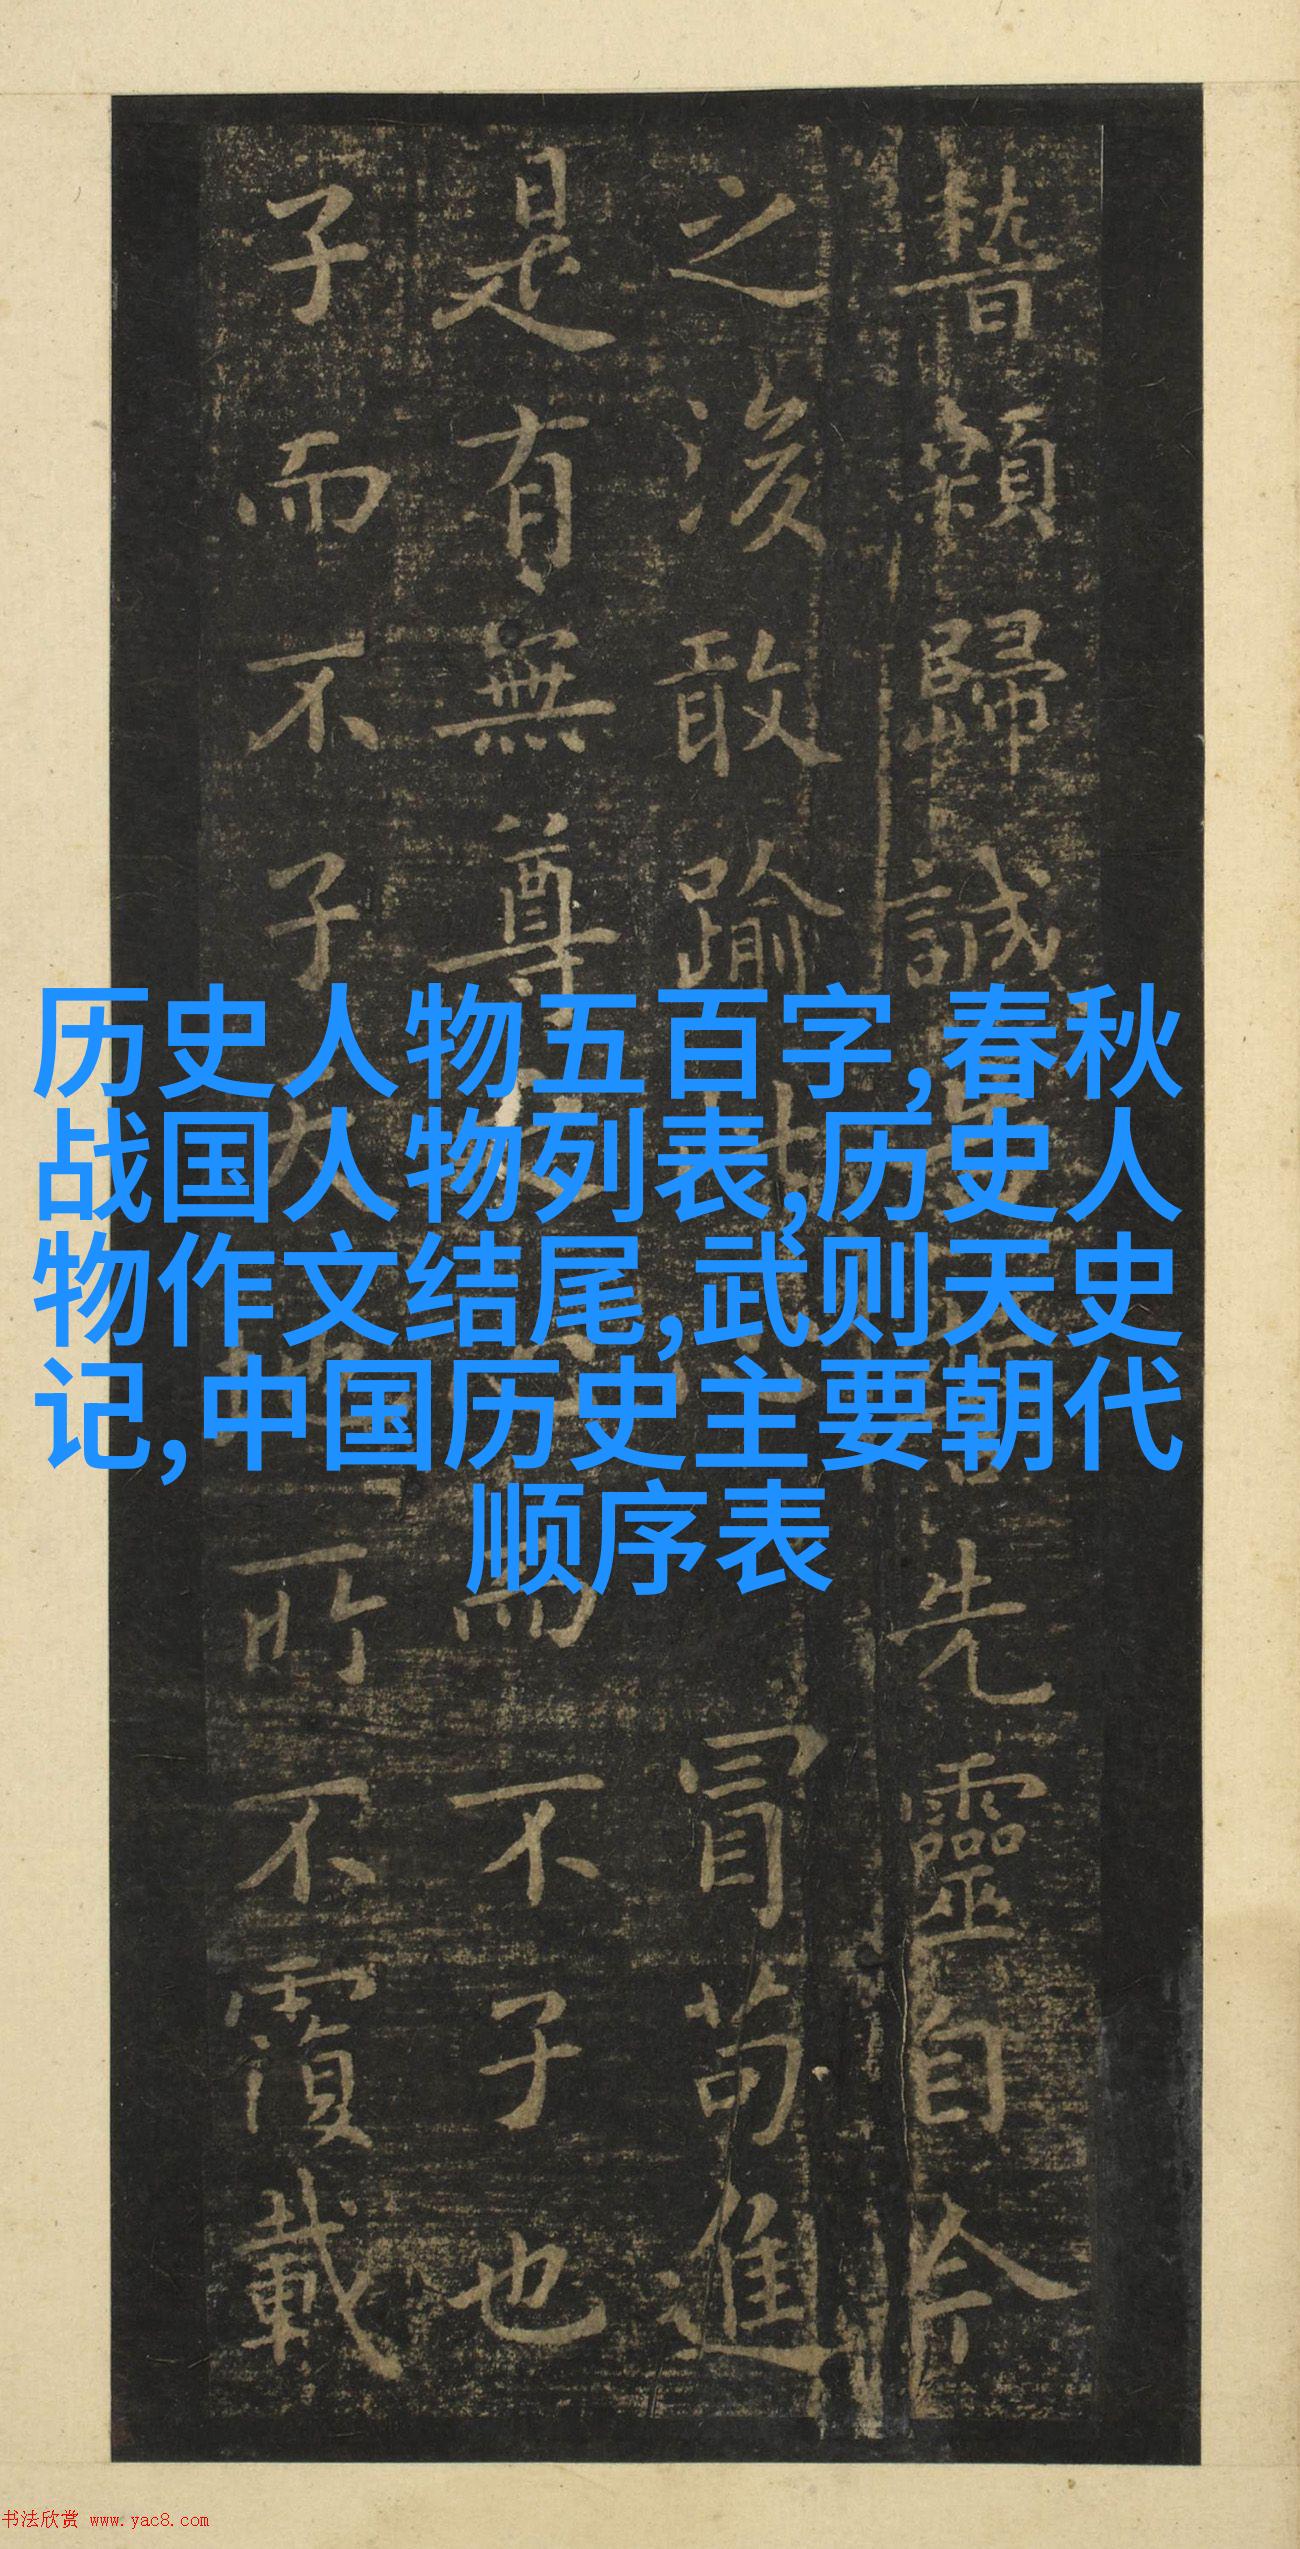 顙歸誠先靈自今
之後敢踰此冒苟進
是有無尊而不子也
子而不子天地所不覆載
历史人物五百字,春秋
战国人物列表,历史人
物作文结尾,武则天史
记,中国历史主要朝代
顺序表
书法欣赏 www.yac8.com